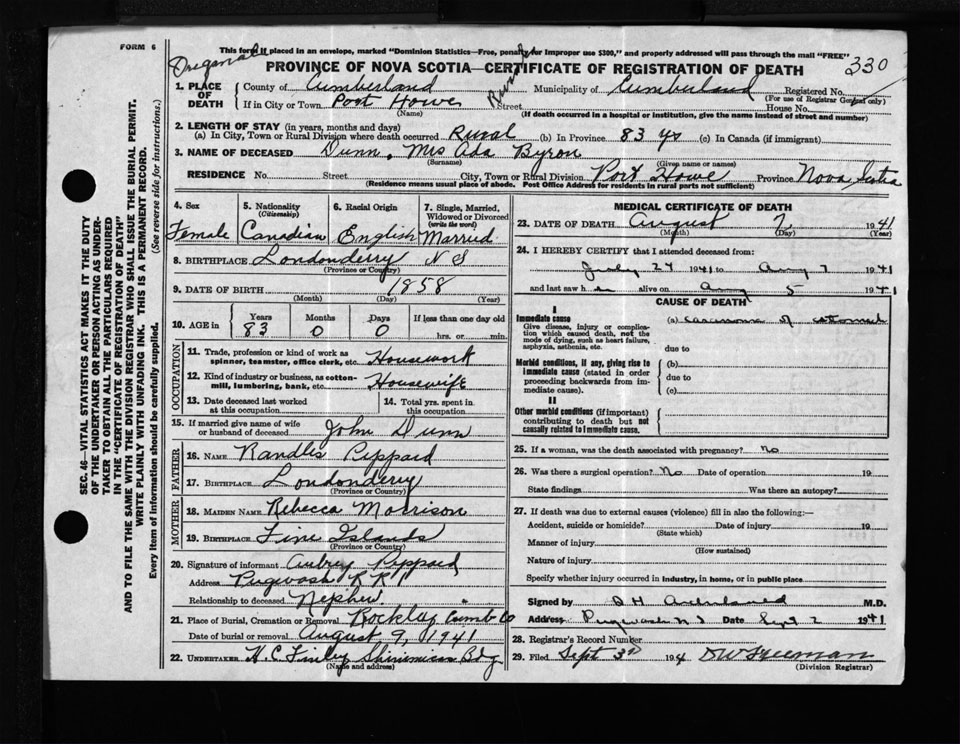 FORM 6
This form if placed in an envelope, marked "Dominion Statistics—Free, penalty for improper use $300," and properly addressed will pass through the mail "FREE"
Original
PROVINCE OF NOVA SCOTIA—CERTIFICATE OF REGISTRATION OF DEATH
330
1. PLACE OF DEATH
County of Cumberland Municipality of Cumberland Registered No.
(For use of Registrar General only)
If in City or Town Port Howe Rural Street House No.
(Name) (If death occurred in a hospital or institution, give the name instead of street and number)
2. LENGTH OF STAY (in years, months and days)
(a) In City, Town or Rural Division where death occurred Rural (b) In Province 83 yr (c) In Canada (if immigrant)
3. NAME OF DECEASED Dunn, Mrs Ada Byron
(Surname) (Given name or names)
RESIDENCE No. Street City, Town or Rural Division Port Howe Province Nova Scotia
(Residence means usual place of abode. Post Office Address for residents in rural parts not sufficient)
4. Sex 5. Nationality (Citizenship) 6. Racial Origin 7. Single, Married, Widowed or Divorced (write the word)
Female Canadian English Married
8. BIRTHPLACE Londonderry N S
(Province or Country)
9. DATE OF BIRTH 1858
(Month) (Day) (Year)
10. AGE in Years Months Days If less than one day old
83 0 0 hrs. or min.
OCCUPATION
11. Trade, profession or kind of work as spinner, teamster, office clerk, etc. Housework
12. Kind of industry or business, as cotton-mill, lumbering, bank, etc. Housewife
13. Date deceased last worked at this occupation
14. Total yrs. spent in this occupation
15. If married give name of wife or husband of deceased John Dunn
FATHER
16. NAME Randles Peppard
17. BIRTHPLACE Londonderry
(Province or Country)
MOTHER
18. MAIDEN NAME Rebecca Morrison
19. BIRTHPLACE Five Islands
(Province or Country)
20. Signature of informant Aubrey Peppard
Address Pugwash R R 1
Relationship to deceased Nephew
21. Place of Burial, Cremation or Removal Rockley Cumb Co
Date of burial or removal August 9, 1941
22. UNDERTAKER H. C. Finley Shinimicas Bdg
(Name and address)
MEDICAL CERTIFICATE OF DEATH
23. DATE OF DEATH August 7 1941
(Month) (Day) (Year)
24. I HEREBY CERTIFY that I attended deceased from:
July 27 1941 to Aug 7 1941
and last saw her alive on Aug 5 1941
CAUSE OF DEATH
I
Immediate cause (a) carcinoma of stomach
Give disease, injury or complication which caused death, not the mode of dying, such as heart failure, asphyxia, asthenia, etc.
due to
Morbid conditions, if any, giving rise to immediate cause (stated in order proceeding backwards from immediate cause)
(b)
due to
(c)
II
Other morbid conditions (if important) contributing to death but not causally related to immediate cause.
25. If a woman, was the death associated with pregnancy? no
26. Was there a surgical operation? No Date of operation 19
State findings Was there an autopsy?
27. If death was due to external causes (violence) fill in also the following:—
Accident, suicide or homicide? Date of injury 19
(State which)
Manner of injury
(How sustained)
Nature of injury
Specify whether injury occurred in industry, in home, or in public place
Signed by D H M.D.
Address Pugwash N S Date Sept 2 1941
28. Registrar's Record Number
29. Filed Sept 3rd 194 DW Freeman
(Division Registrar)
SEC. 46—VITAL STATISTICS ACT MAKES IT THE DUTY
OF THE UNDERTAKER OR PERSON ACTING AS UNDER-
TAKER TO OBTAIN ALL THE PARTICULARS REQUIRED
IN THE "CERTIFICATE OF REGISTRATION OF DEATH"
AND TO FILE THE SAME WITH THE DIVISION REGISTRAR WHO SHALL ISSUE THE BURIAL PERMIT.
WRITE PLAINLY WITH UNFADING INK. THIS IS A PERMANENT RECORD.
Every item of information should be carefully supplied. (See reverse side for instructions.)